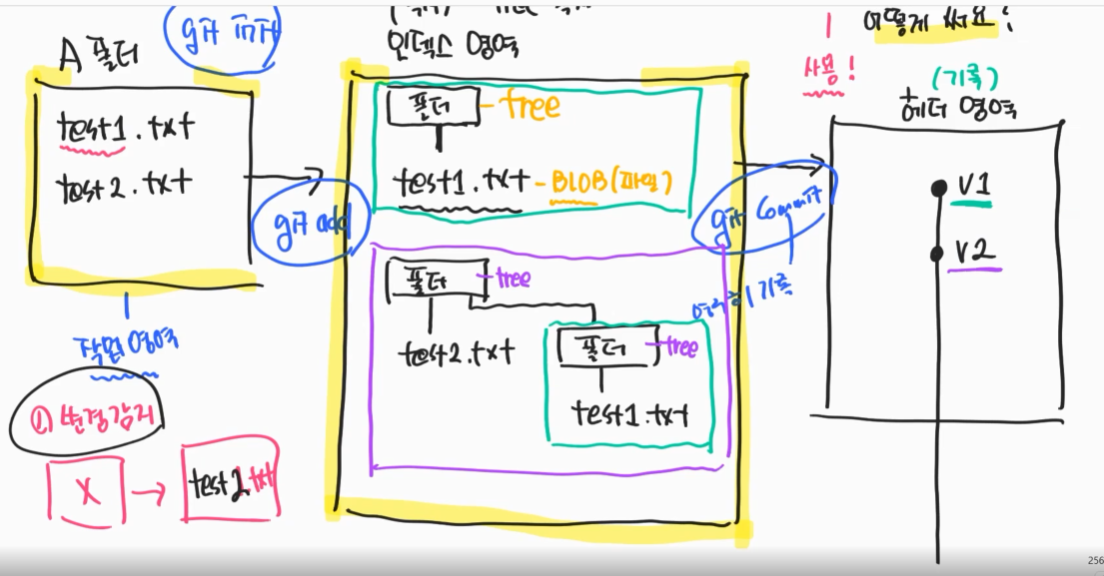 git init
A 폴더
test1.txt
test2.txt
작업영역
① 변경감지
X → test2.txt
git add
인덱스 영역
폴더 - tree
test1.txt - BLOB(파일)
폴더 - tree
test2.txt
폴더 - tree
test1.txt
git commit
영구히 기록
사용!
(기록)
헤더 영역
v1
v2
256